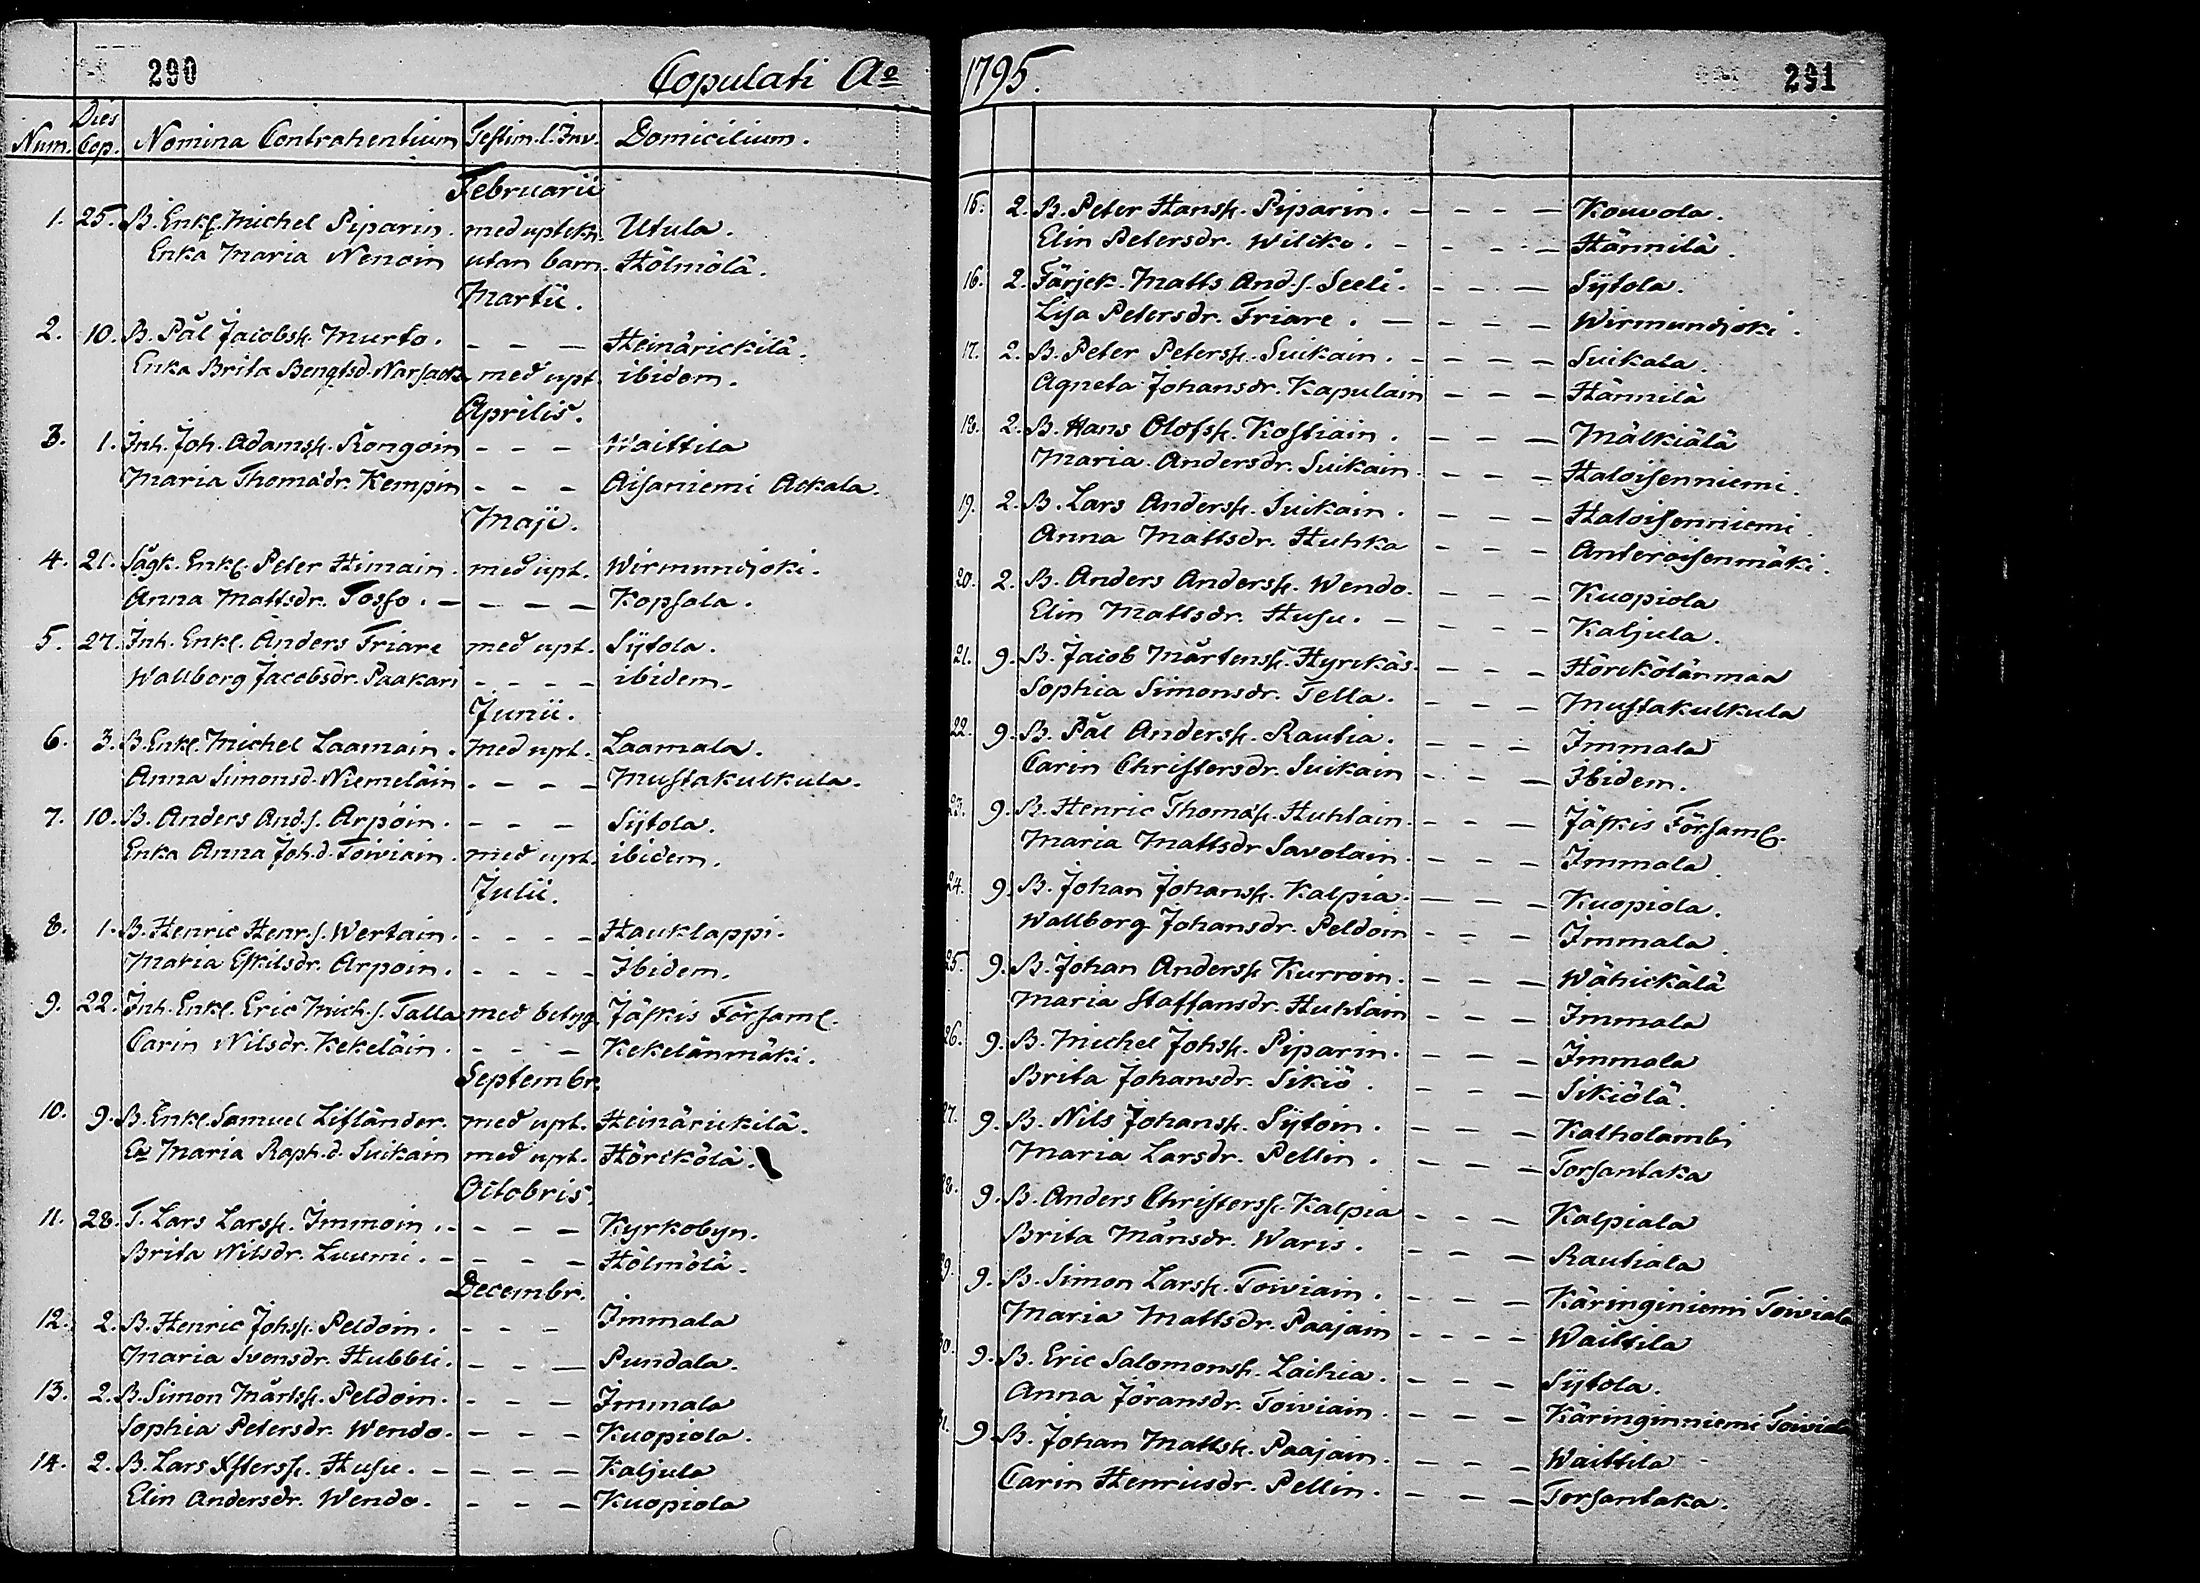 290
Copulati Aº
Num. Dies Cop. Nomina Contrahentium Testim. l. Inv. Domicilium.
Februarii
1. 25. B. Enkl. Michel Piparin. med uptekn. Utula.
Enka Maria Nenoin utan barn. Hölmölä.
Martii.
2. 10. B. Pål Jacobss. Murto. - - - Heinärickilä.
Enka Brita Bengtsd. med upt. ibidem.
Aprilis.
3. 1. Inh. Joh. Adamss. Rongoin - - - Waittila
Maria Thomadr. Kempin - - - Aisaniemi Ackala.
Maji.
4. 21. Sågk. Enkl. Peter Himain. med upt. Wirmundjoki.
Anna Mattsdr. Tosso. - - - - Kopsala.
5. 27. Inh. Enkl. Anders Friare med upt. Sÿtola.
Wallborg Jacobsdr. Paakari - - - - ibidem.
Junii.
6. 3. B. Enkl. Michel Laamain. med upt. Laamala.
Anna Simonsd. Niemeläin - - - - Mustakulkula.
7. 10. B. Anders And.s. Arpoin. - - - Sÿtola.
Enka Anna Joh.d. Toiviain. med upt. ibidem.
Julii.
8. 1. B. Henric Henr.s. Wertain. - - - - Hauklappi.
Maria Eskilsdr. Arpoin. - - - - Ibidem.
9. 22. Inh. Enkl. Eric Mich.s. Talla med betyg. Jäskis Församl.
Carin Nilsdr. Kekeläin. - - - Kekelänmäki.
Septembr.
10. 9. B. Enkl. Samuel Lifländer. med upt. Heinärickilä.
Ea Maria Raph.d. Suikain med upt. Hörckölä.
Octobris.
11. 28. T. Lars Larss. Immoin. - - - - Kyrkobyn.
Brita Nilsdr. Luumi. - - - - Hölmölä.
Decembr.
12. 2. B. Henric Johss. Peldoin. - - - Immala
Maria Svensdr. Hubbli. - - - Pundala.
13. 2. B. Simon Mårtss. Peldoin. - - - Immala
Sophia Petersdr. Wendo. - - - Kuopiola.
14. 2. B. Lars Xsterss. Husu. - - - - Kaljula
Elin Andersdr. Wendo. - - - Kuopiola
1795.
291
15. 2. B. Peter Hanss. Piparin. - - - - Kouvola.
Elin Petersdr. Wilcko. - - - - Hännilä.
16. 2. Färjek. Matts And.s. Seeli. - - - Sÿtola.
Lisa Petersdr. Friare. - - - - Wirmundjoki.
17. 2. B. Peter Peterss. Suikain. - - - - Suikala.
Agneta Johansdr. Kapulain - - - Hännilä
18. 2. B. Hans Olofss. Kostiain. - - - Mälkiälä
Maria Andersdr. Suikain. - - - Haloisenniemi.
19. 2. B. Lars Anderss. Suikain. - - - Haloisenniemi.
Anna Mattsdr. Huhka - - - Anteroisenmäki.
20. 2. B. Anders Anderss. Wendo. - - - Kuopiola
Elin Mattsdr. Husu. - - - - Kaljula.
21. 9. B. Jacob Mårtenss. Hyrckäs. - - - Hörckölänmaa
Sophia Simonsdr. Tella. - - - Mustakulkula
22. 9. B. Pål Anderss. Rautia. - - - Immala
Carin Christersdr. Suikain - - - Ibidem.
23. 9. B. Henric Thomass. Huhtain. - - - Jäskis Församl.
Maria Mattsdr Savolain. - - - Immala.
24. 9. B. Johan Johanss. Kalpia. - - - Kuopiola.
Wallborg Johansdr. Peldoin - - - Immala.
25. 9. B. Johan Anderss Kurroin. - - - Wähickälä
Maria Staffansdr. Huhtain - - - Immala
26. 9. B. Michel Johss. Piparin. - - - Immala
Brita Johansdr. Sikiö. - - - Sikiölä.
27. 9. B. Nils Johanss. Sÿtoin. - - - Kalholambi
Maria Larsdr. Pellin. - - - Torsantaka
28. 9. B. Anders Christerss. Kalpia - - - Kalpiala
Brita Månsdr. Waris. - - - Rautiala
29. 9. B. Simon Larss. Toiviain. - - - Käringiniemi Toiviala
Maria Mattsdr. Paajain - - - - Waittila
30. 9. B. Eric Salomonss. Laihia. - - - Sÿtola.
Anna Jöransdr. Toiviain. - - - Käringinniemi Toiviala
31. 9 B. Johan Mattss. Paajain. - - - Waittila
Carin Henricsdr. Pellin. - - - Torsantaka.